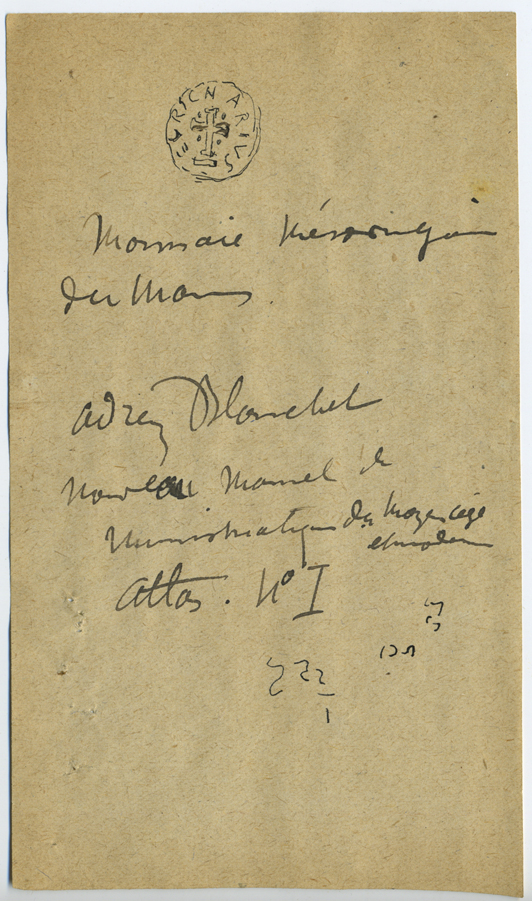 Monnaie Mérovingien
du Mans.
Adrien Blanchet
Nouveau Manuel de
Numismatique du Moyen age
et moderne
Atlas. N° I